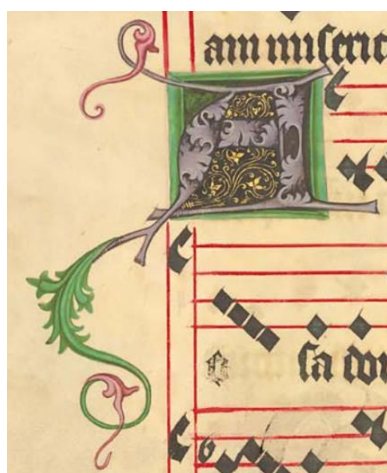 am miſeric
A
ſa